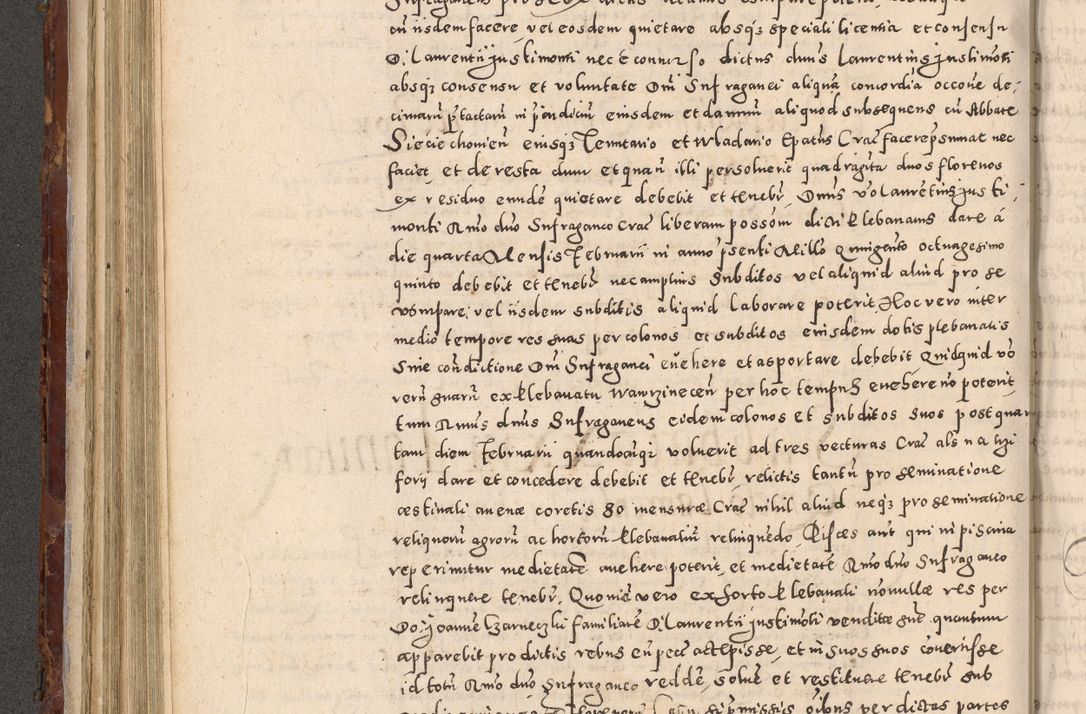 cū iisdem facere, vel eosdem quietare absqz speciali licentia et consensu
D. Laurentii Justimonti nec ē conuerso dictus dnus Laurentius Justimoti
absqz consensu et voluntate Dni Suffraganei aliqua concordia occōne de-
cimarū ptactarū in pndiciū eiusdem et damnū aliquod subsequens cū Abbate
Sieciechouien eiusqz et Wladario Epatus Crac facere psumat nec
faciet, et de resta dum et quan illi persoluerit quadragita duos florenos
ex residuo eundē quietare debebit et tenebr, Dnus vo Laurētius Justi-
monti Rmo dno Suffraganeo Crac liberam possom dicti plebanatus dare a
die quarta Mensis Februarii in anno psenti Millo Quingento octuagesimo
quinto debebit et tenebr nec amplius subditos vel aliquid aliud pro se
vsurpare, vel iisdem subditis aliquid laborare poterit, Hoc vero inter
medio tempore res suas per colonos et subditos eiusdem dotis plebanatis
Sine condictione Dni Suffraganei euehere et asportare debebit Quidquid vo
rerū suarū ex plebanatu Wawrzinecen per hoc tempus euehere nō poterit,
tum Rmus dnus Suffraganeus eidem colonos et subditos suos post quar
tam diem Februarii quandocūqz voluerit ad tres vecturas Crac als na trzi
forij dare et concedere debebit et tenebr, relictis tantū pro seminatione
aestiuali auenae coretis 80 mensurae Crac nihil aliud neqz pro seminatione
reliquorū agrorū ac hortorū plebanaliū relinquēdo, Pisces aut qui in piscina
reperiuntur medietatē auehere poterit, et medietatē Rmo dno Suffraganeo
relinquere tenebr, Quonia vero ex horto plebanali nōnullae res per
D. Joannē Czarneczki familiarē D. Laurentii Justimoti venditae sut quantum
apparebit pro dictis rebus eū pecc accepisse, et in suos suos couertisse
id totū Rmo dno Suffraganeo reddē, soluē et restituere tenebr sub
pmissis oibus per dictas partes